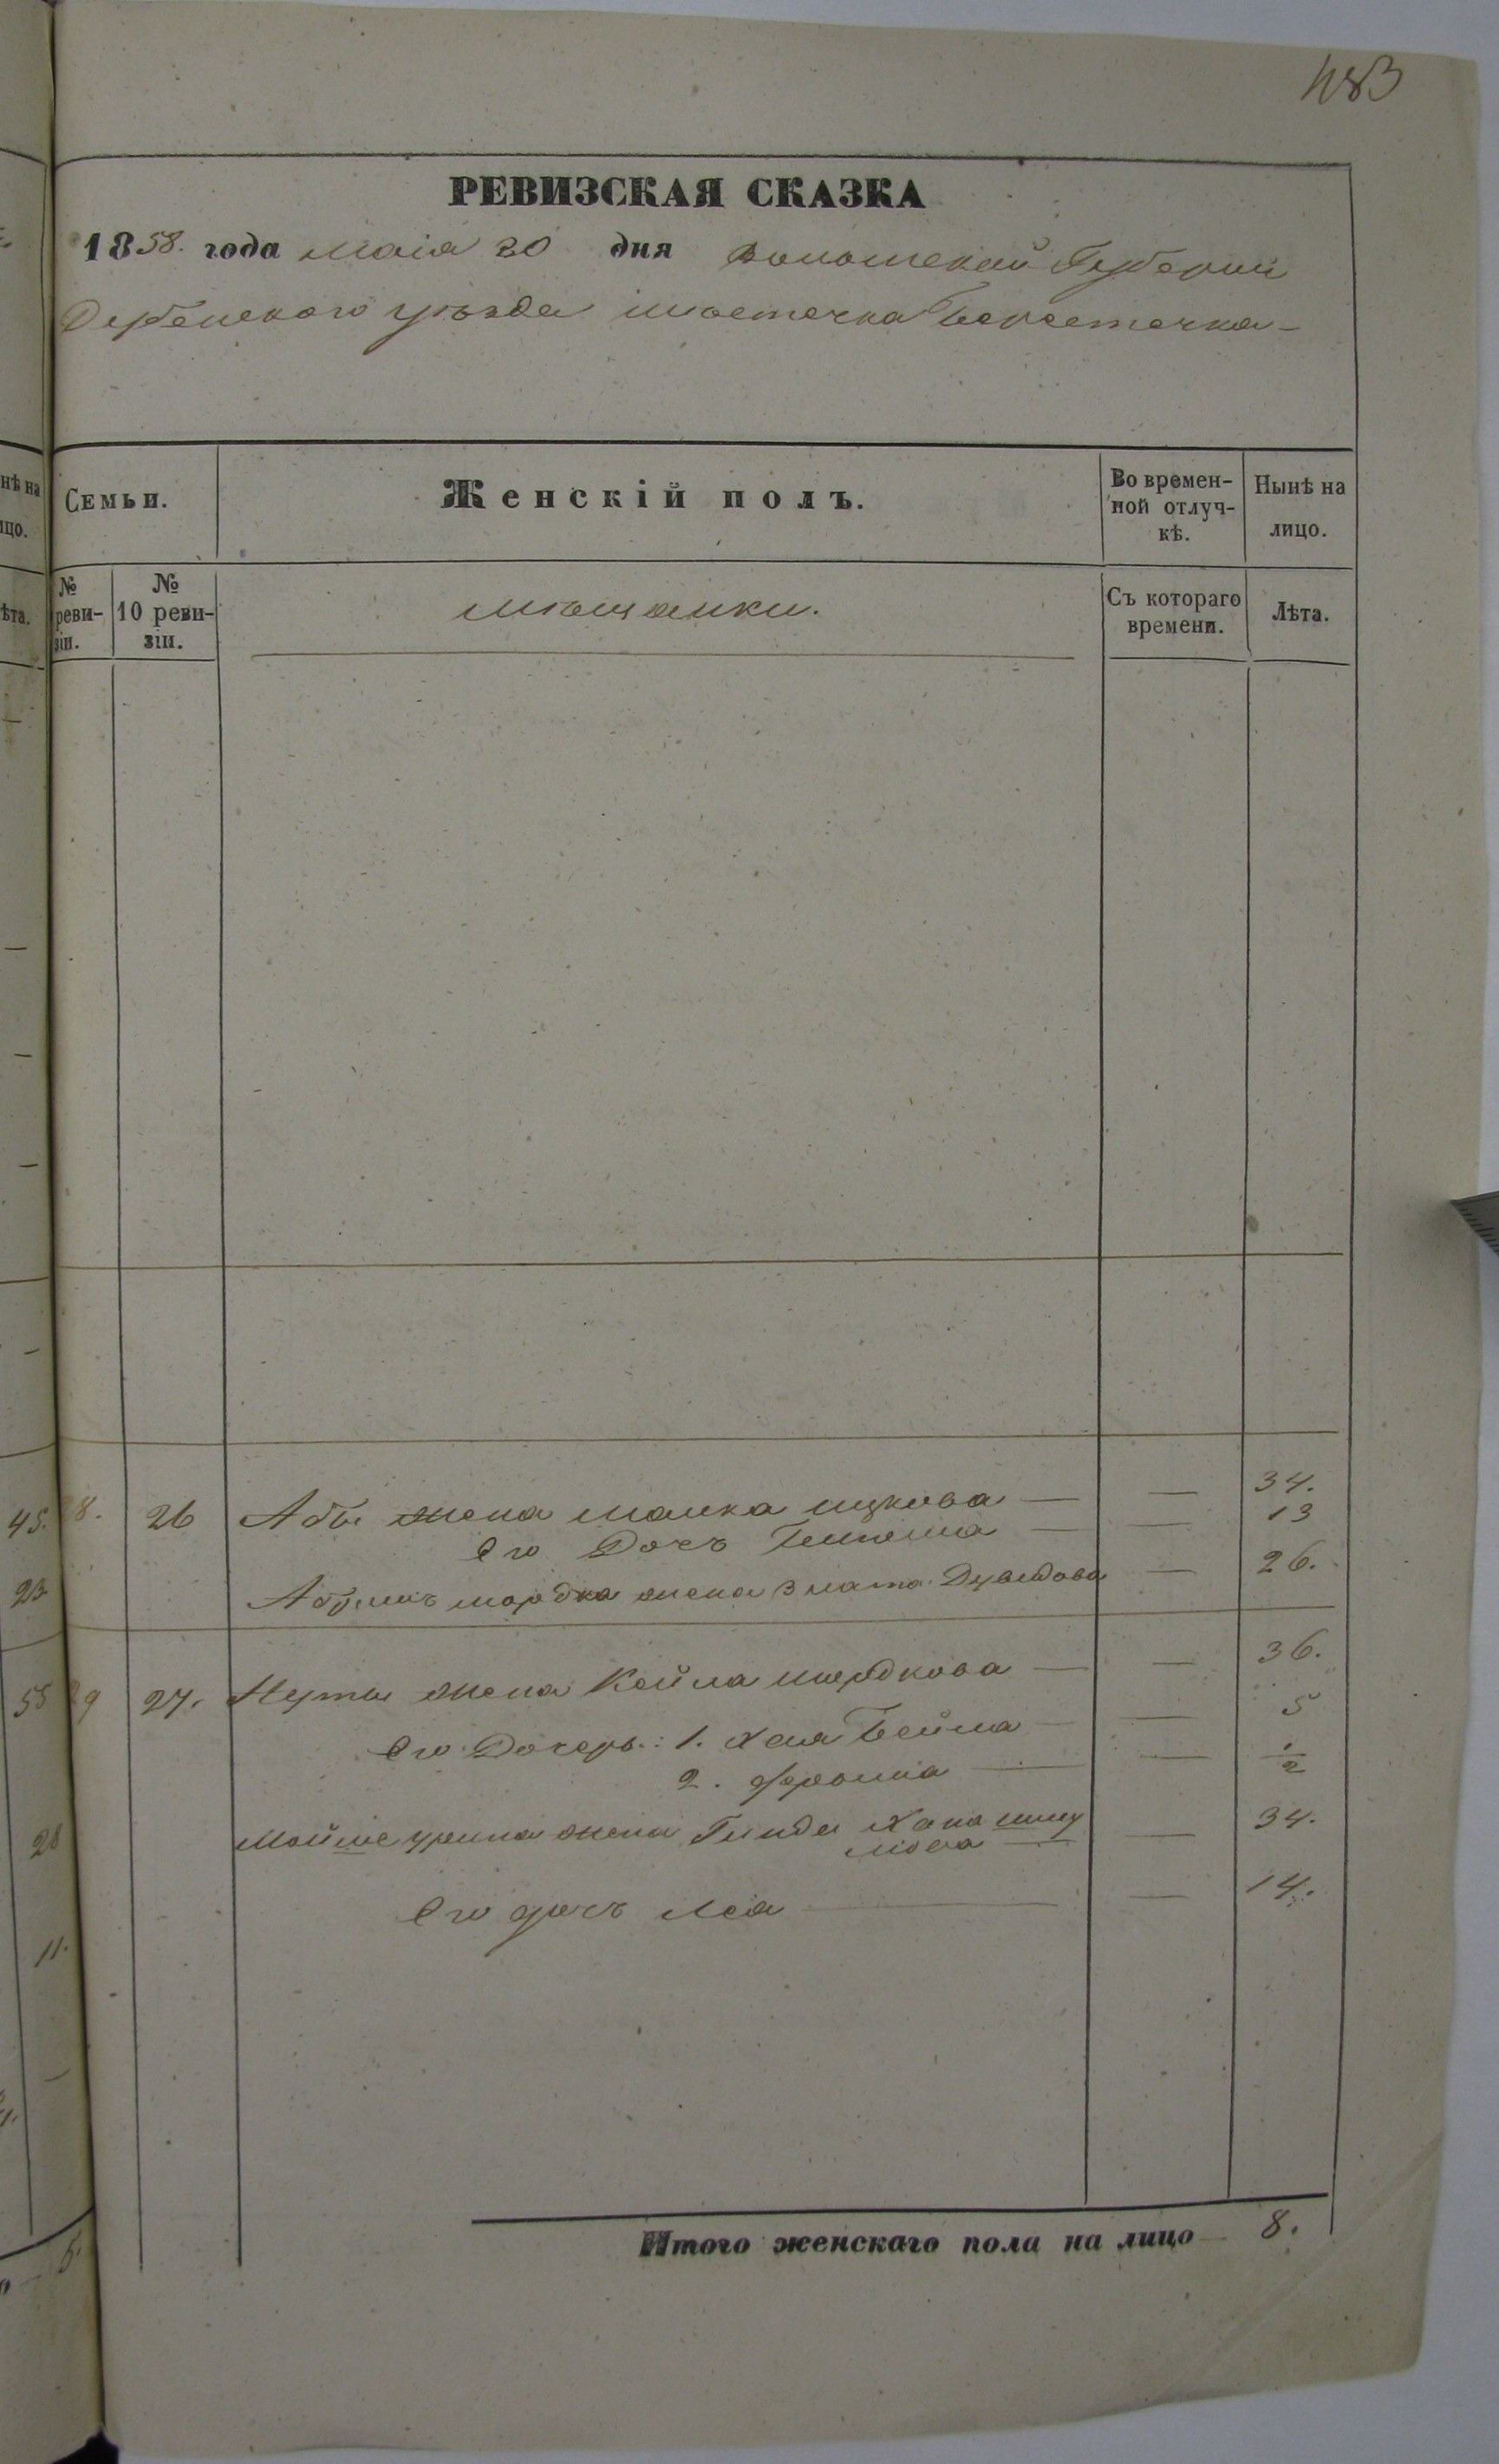 483
РЕВИЗСКАЯ СКАЗКА
1858. года маія 20 дня Волынской Губерніи
Дубенскаго уѣзда мѣстечка Берестечка
Семьи.
Женскій полъ.
Во времен-
ной отлуч-
кѣ.
Нынѣ на
лицо.
№
реви-
зіи.
№
10 реви-
зіи.
мѣщанки.
Съ котораго
времени.
Лѣта.
28. 26 Абы жена Малка Ицкова — — 34.
Его Дочь — — 13
Абрамъ Мордка жена Злата Дувидова — 26.
29 27. Нуты жена Кейла Мордкова — — 36.
Его Дочери: 1. Хая Бейла — — 5
2. Фрейма — — 1/2
Мойше жена Гинда Хана Шму
лова — — 34.
Его дочь Лея — — 14.
Итого женскаго пола на лицо — 8.
нѣ на
цо.
ѣта.
45.
23
55
28
11.